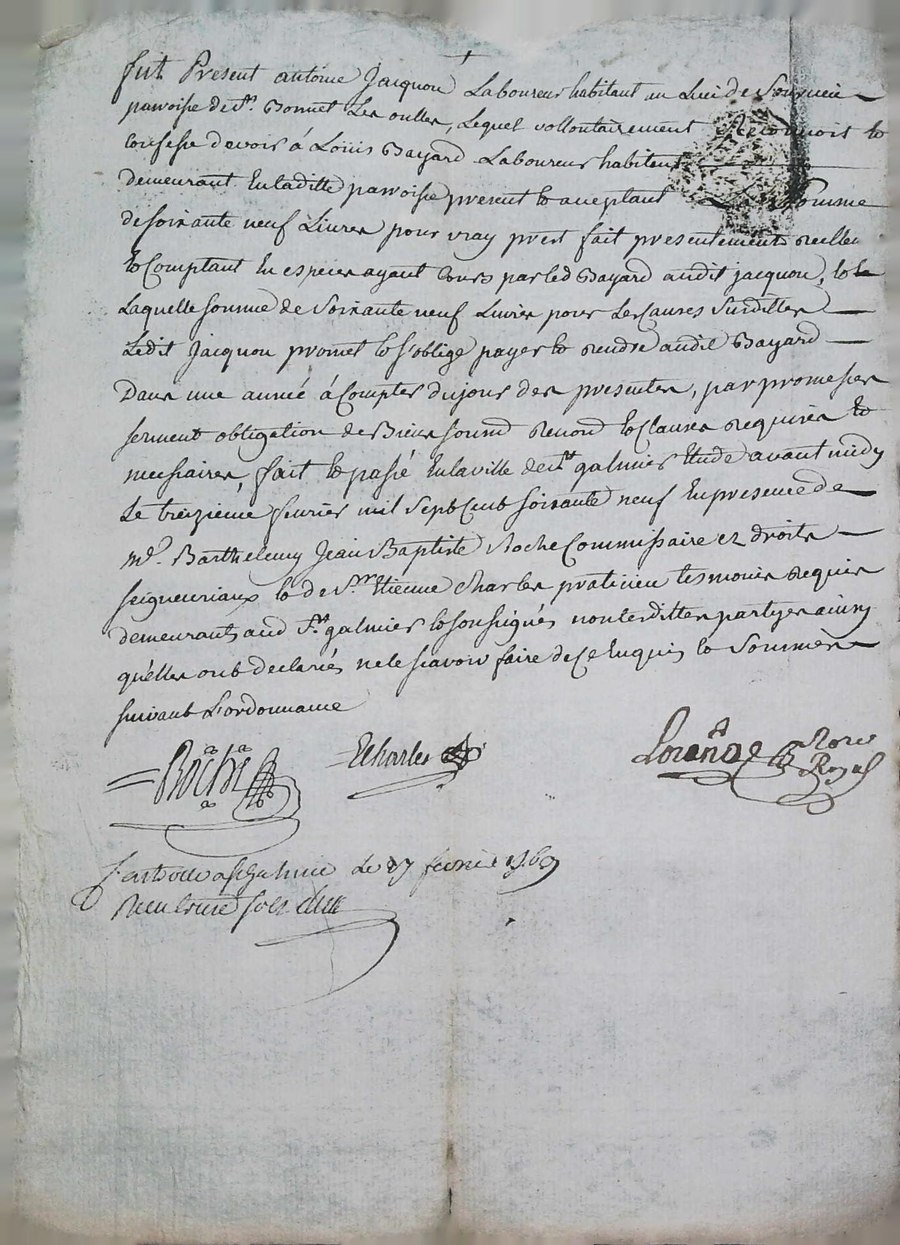 fut Present antoine Jacquou Laboureur habitant au Lieu de
paroisse de St. Bonnet Les oulles, Lequel vollontairement Reconnoit et
confesse devoir á Louis Bayard Laboureur habitant
demeurant En laditte paroisse present et acceptant La Somme
de soixante neuf Livres pour vray prest fait presentement Reellem
et Comptant En especes ayant Cours par led Bayard audit jacquou,
Laquelle somme de Soixante neuf Livres pour Les Causes Susdittes
Ledit Jacquou promet et s'oblige payer et rendre audit Bayard
Dans une année á Compter du jour des presentes, par promesses
serment obligation de Biens soumd renond et Clauses requises et
necessaires, fait et passé En la ville de St galmier Etude avant midy
Le treizieme fevrier mil Sept Cent soixante neuf En presence de
me. Barthelemy Jean Baptiste Roche Commissaire ez droits
seigneuriaux et de Sr. Etienne Charles praticien tesmoins requis
demeurants aud St. galmier et sousignés non lesdittes partyes
qu'elles ont declarés ne le scavoir faire de Ce Enquis et Sommés
suivant L'ordonnance
Roche
ECharles
Royal
Le 27 fevrier 1769